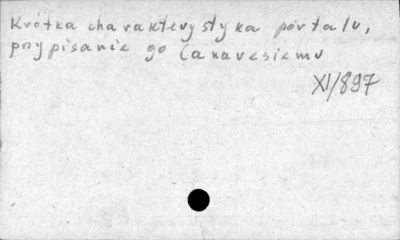 Krótka charakterystyka portalu,
przypisanie go Canavesiemu
XI/897